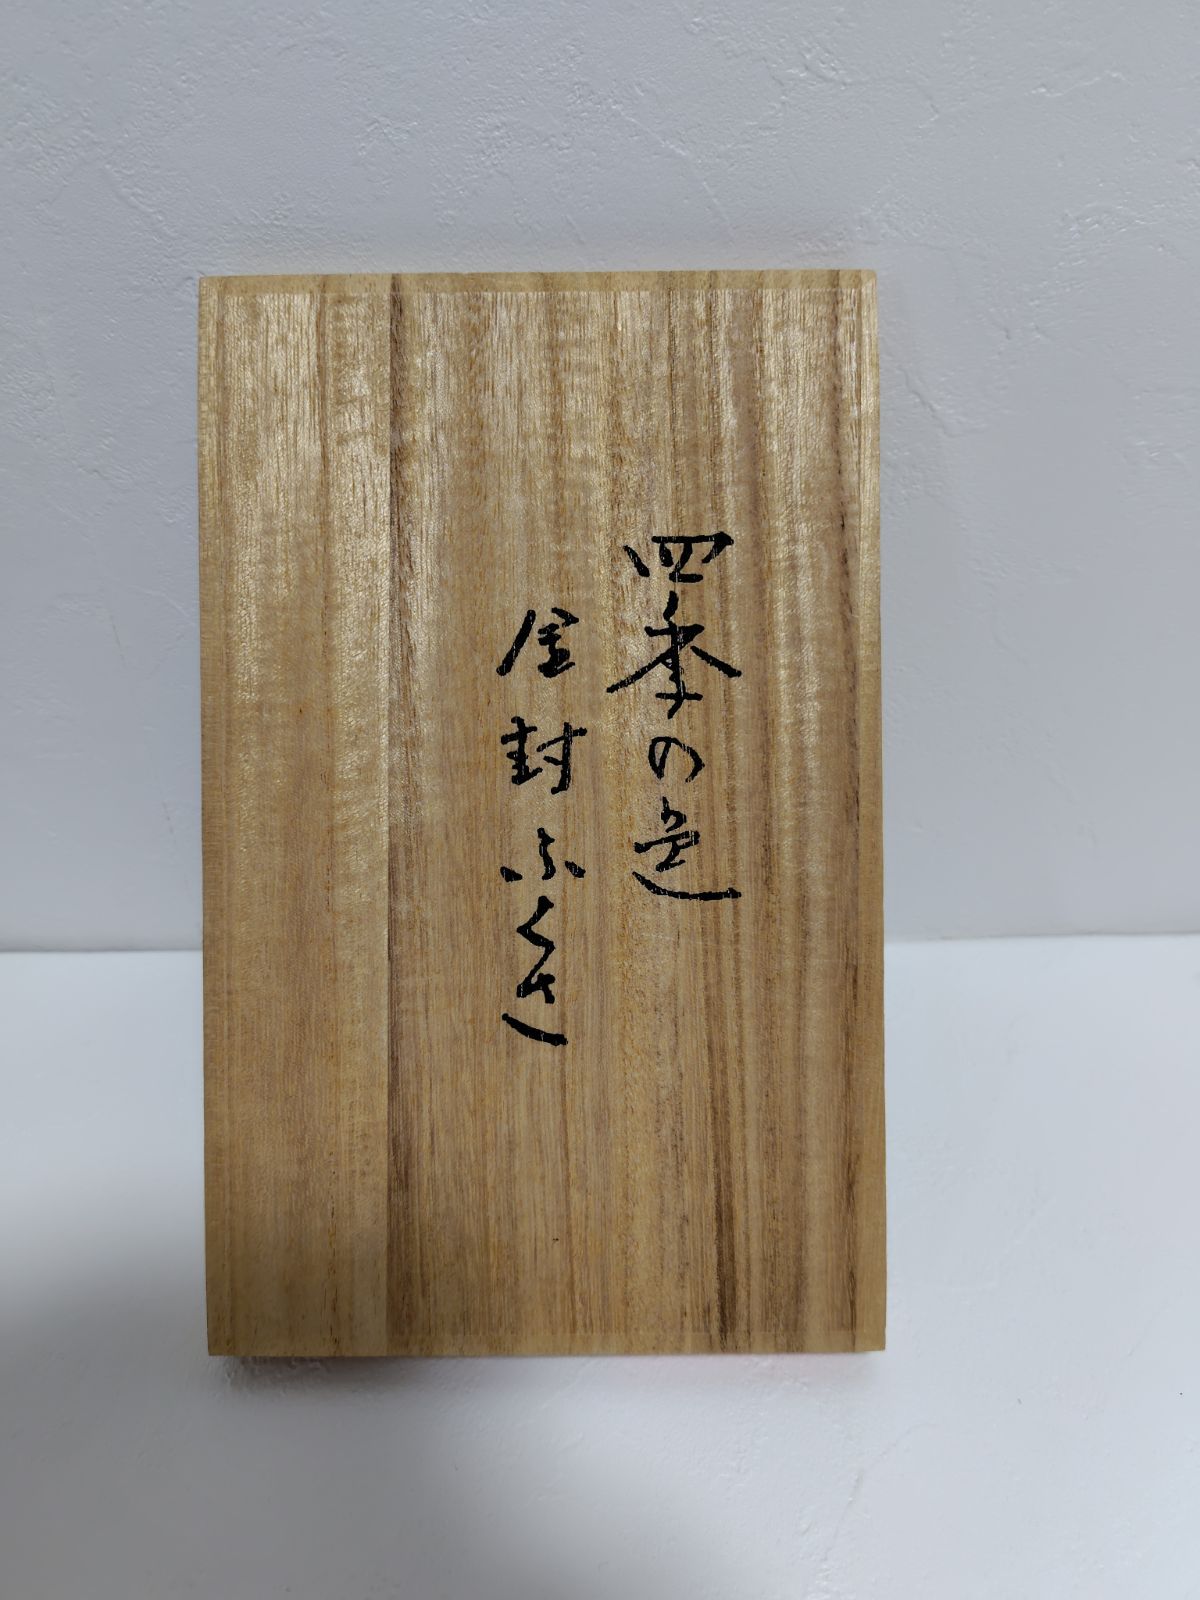 四季の色
金封ふくさ